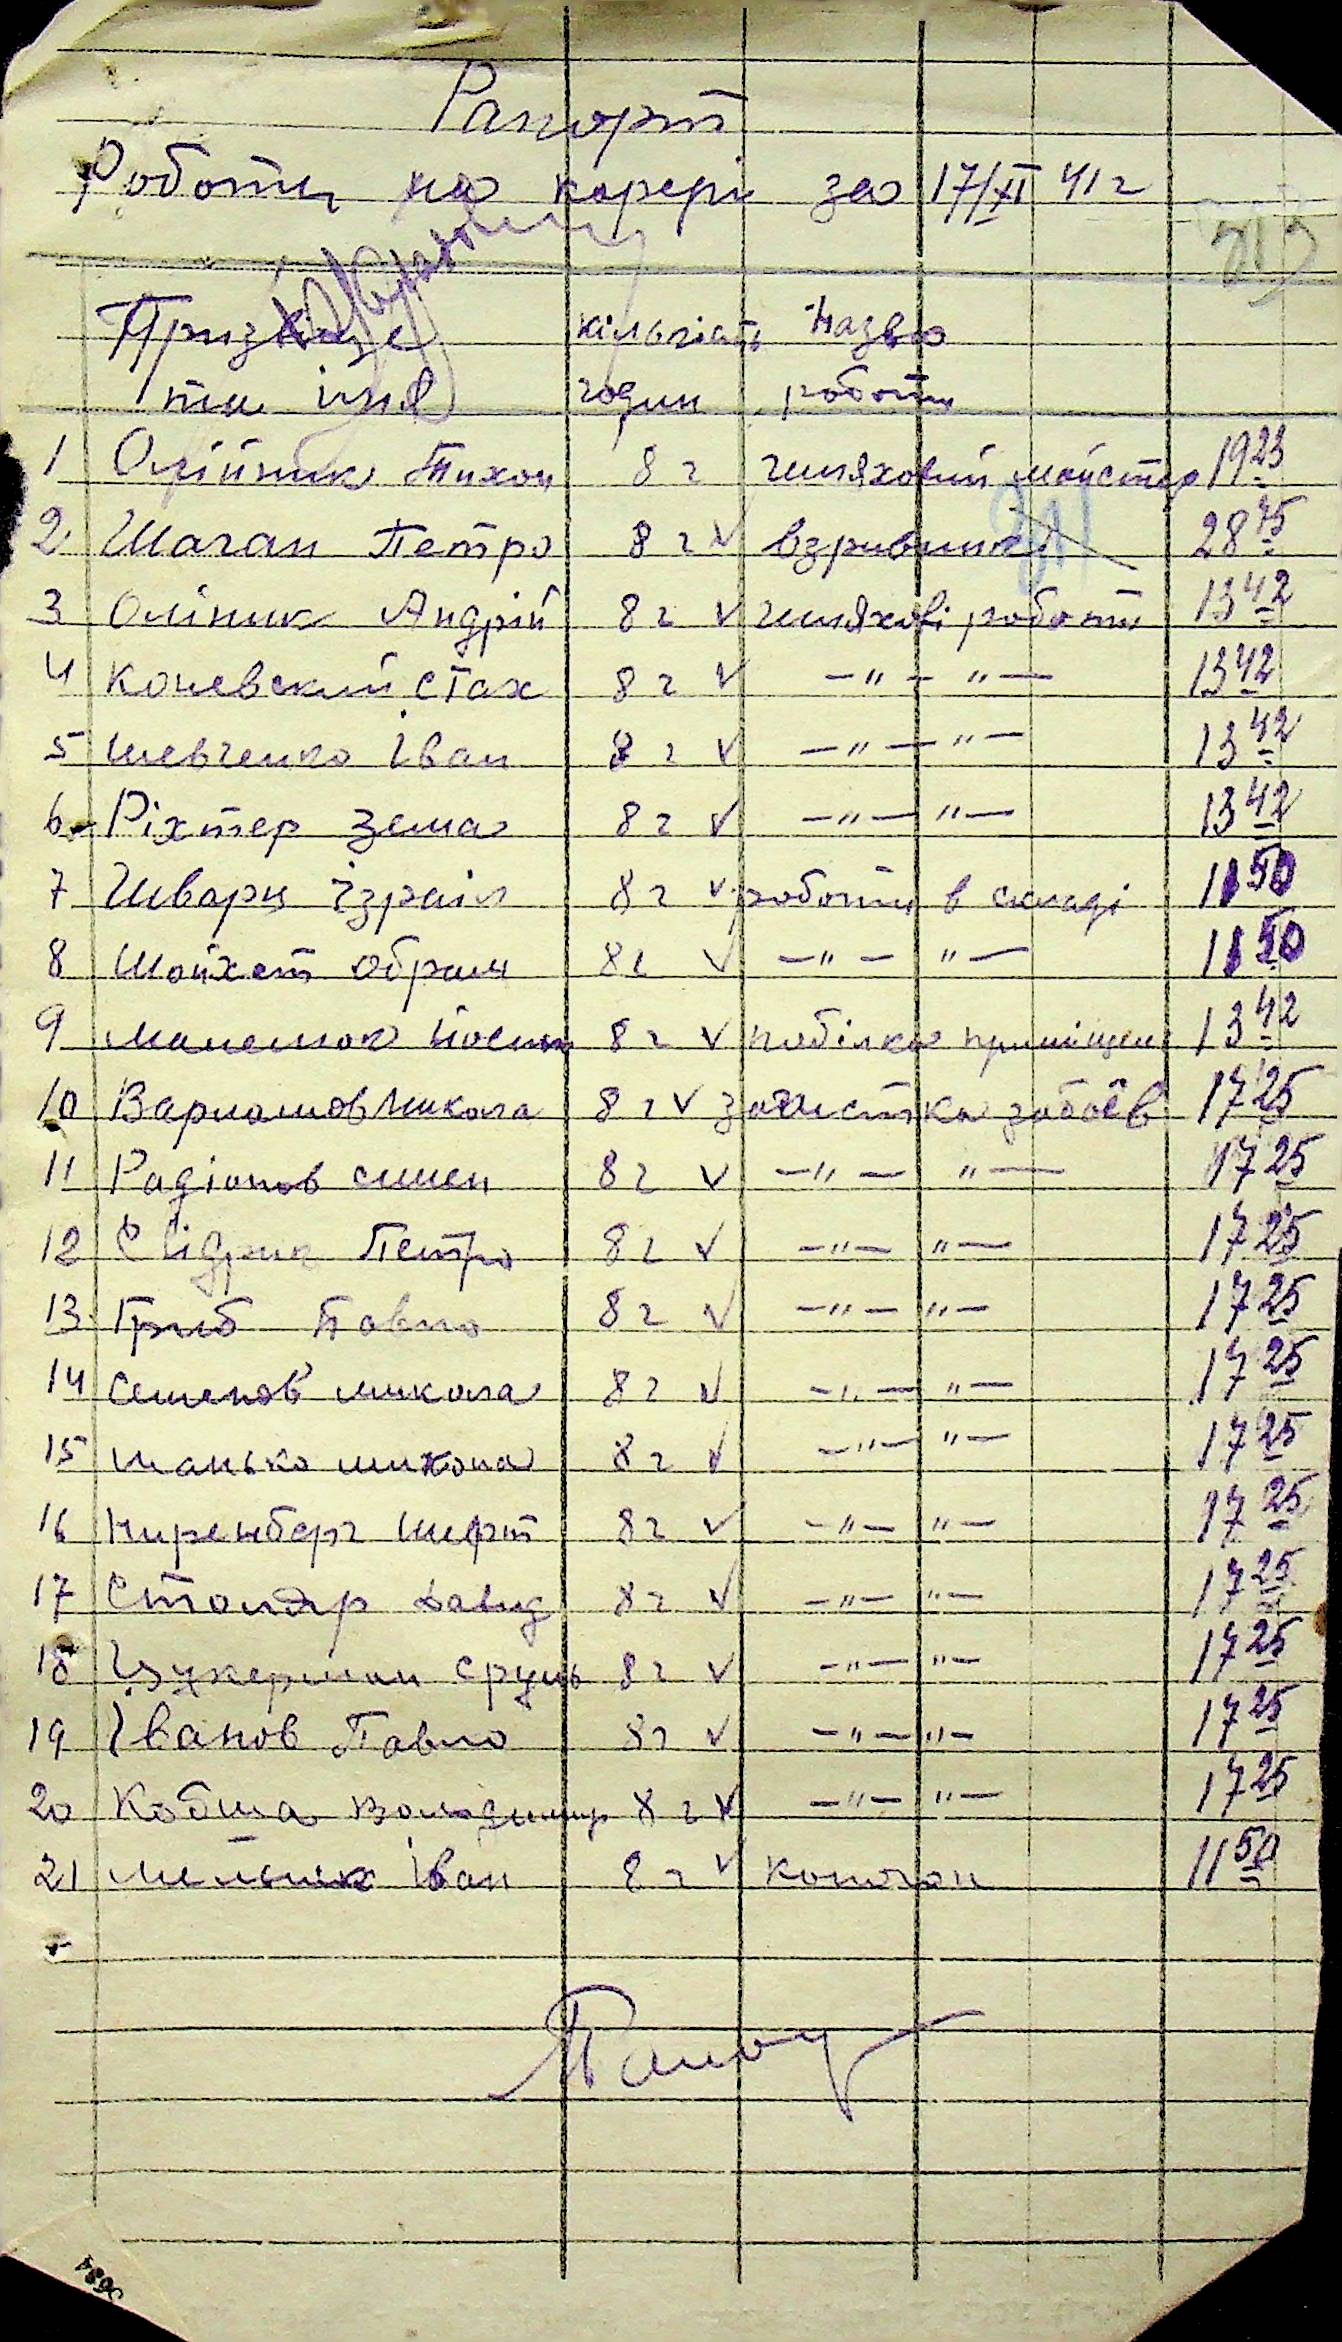 Рапорт
Роботи на карєрі за 17/XI 41 г
213
Призвіще кількіать Назва
та імя годин роботи
1 Олійник Тихон 8 г шляховий майстер 19 23
2 Шаган Петро 8 г v взривник 28 75
3 Оліник Андрій 8 г v шляхові роботи 13 42
4 Коневский Стах 8 г v —"— "— 13 42
5 Шевченко Іван 8 г v —"— "— 13 42
6 Ріхтер Зема 8 г v —"— "— 13 42
7 Шварц Ізраіл 8 г v роботи в складі 11 50
8 Шойхет Обрам 8 г v —"— "— 11 50
9 Йосип 8 г v побілка приміщен 13 42
10 Варламов Микола 8 г v зачистка забоїв 17 25
11 Радіонов Симен 8 г v —"— "— 17 25
12 Свідрик Петро 8 г v —"— "— 17 25
13 Гриб Павло 8 г v —"— "— 17 25
14 Семенов Микола 8 г v —"— "— 17 25
15 Манько Микола 8 г v —"— "— 17 25
16 Ниренберг 8 г v —"— "— 17 25
17 Столяр Давид 8 г v —"— "— 17 25
18 Цукерман Сруль 8 г v —"— "— 17 25
19 Іванов Павло 8 г v —"— "— 17 25
20 Кобша Володимир 8 г v —"— "— 17 25
21 Мельник Іван 8 г v коногон 11 50